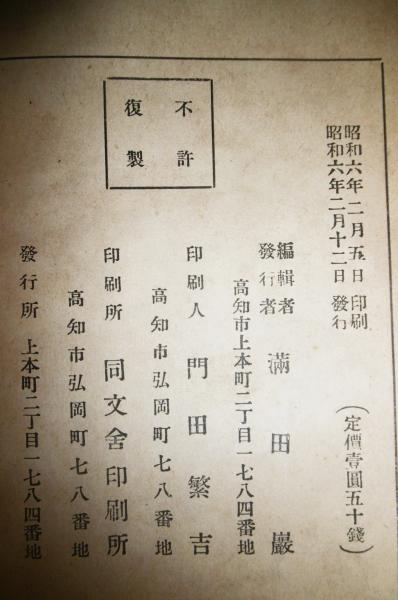 昭和六年二月五日 印刷
昭和六年二月十二日 發行
(定價壹圓五十錢)
編輯者
發行者 滿田巖
高知市上本町二丁目一七八四番地
印刷人 門田繁吉
高知市弘岡町七八番地
印刷所 同文舍印刷所
高知市弘岡町七八番地
發行所 上本町二丁目一七八四番地
不許
復製